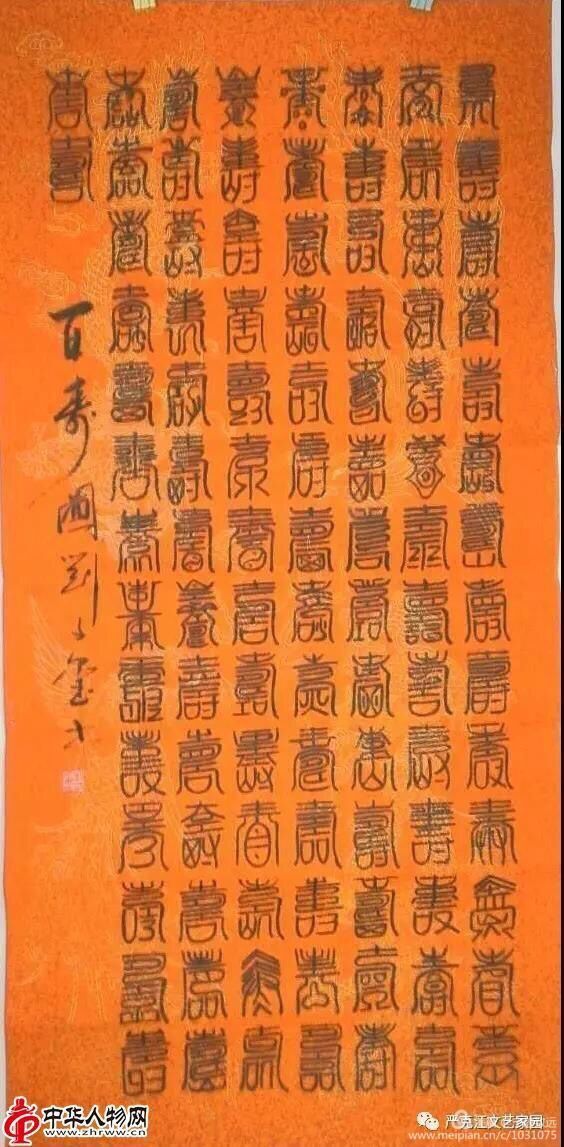 壽壽壽壽壽壽壽壽壽壽壽壽壽壽
壽壽壽壽壽壽壽壽壽壽壽壽壽壽
壽壽壽壽壽壽壽壽壽壽壽壽壽壽
壽壽壽壽壽壽壽壽壽壽壽壽壽壽
壽壽壽壽壽壽壽壽壽壽壽壽壽壽
壽壽壽壽壽壽壽壽壽壽壽壽壽壽
壽壽壽壽壽壽壽壽壽壽壽壽壽壽
壽壽
百寿圖劉
中华人物网
www.zhrww.cn
严克江文艺家园
www.meipian.cn/c/1031075